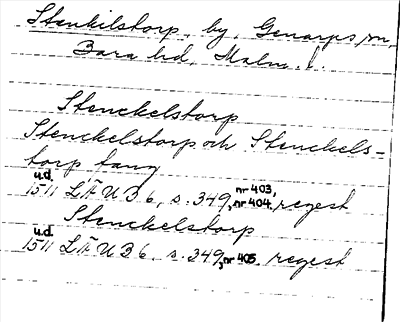 Stenkilstorp, by, Genarps sn,
Bara hd, Malm. l.
Stenckelstorp
Stenckelstorp och Stenckels-
torp tang
u.d.
1511 LÄUB 6, s. 349, nr 403, nr 404, regest
Stenckelstorp
u.d.
1511 LÄUB 6, s. 349, nr 405, regest